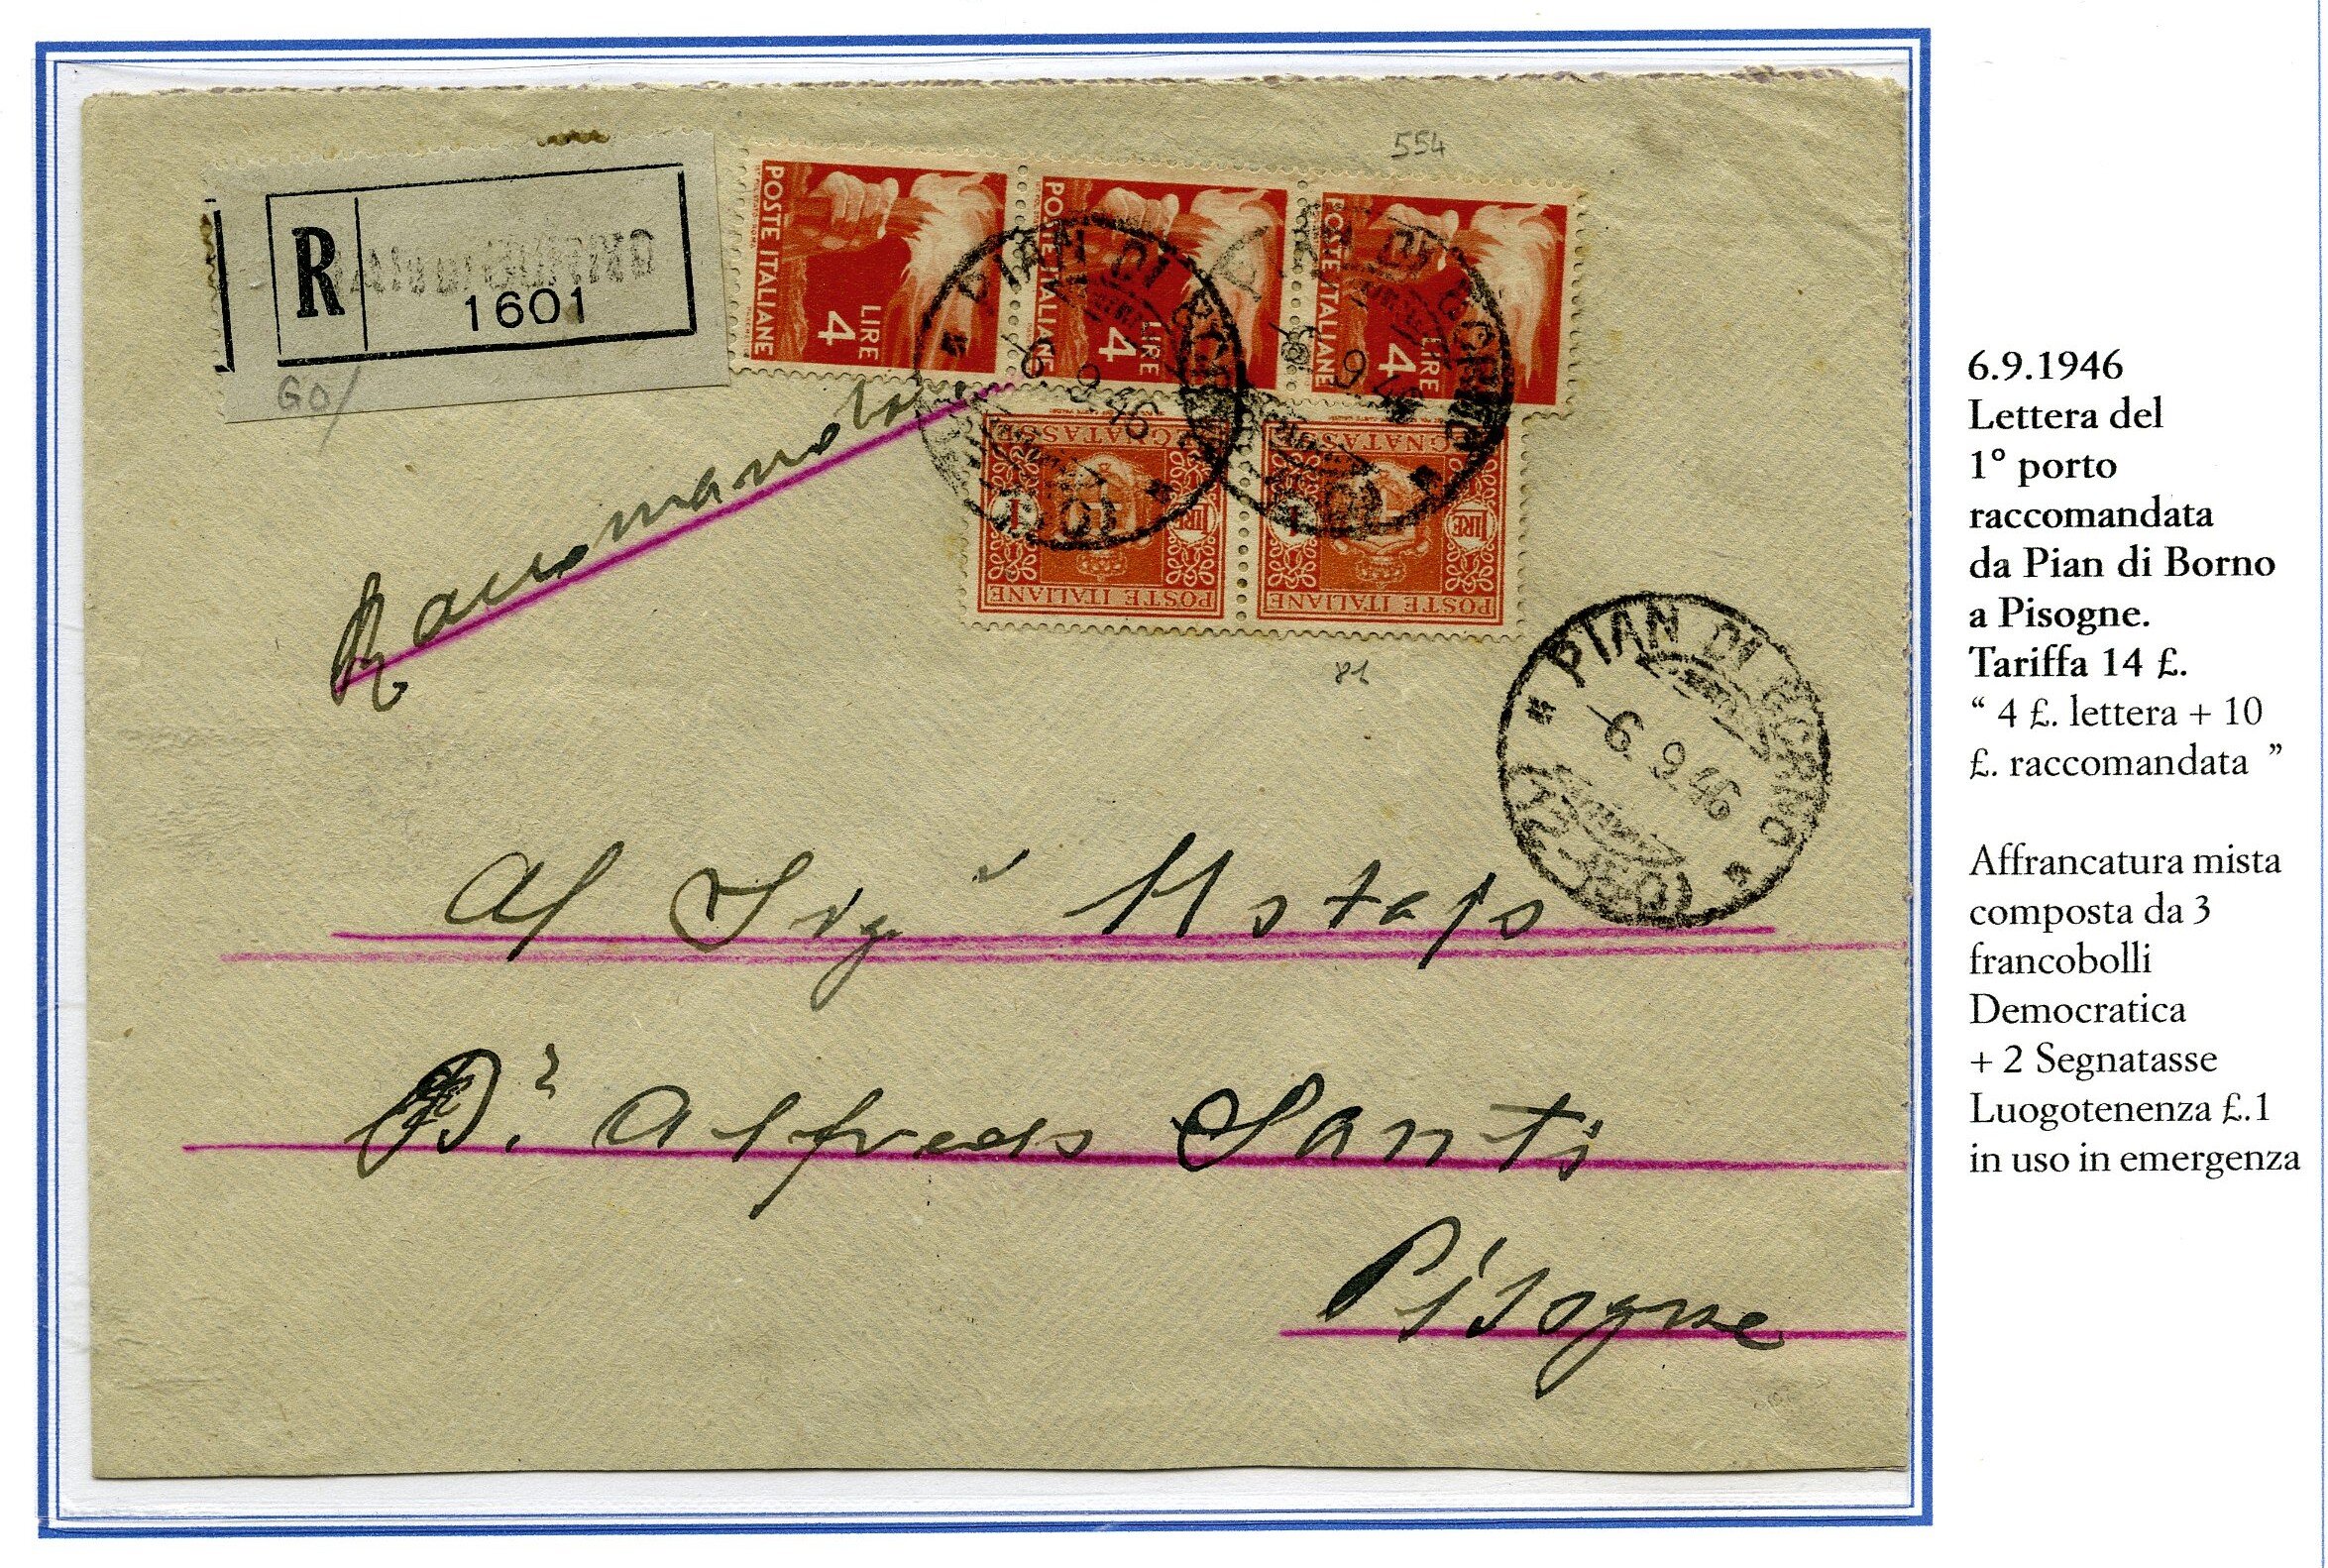 554
R
1601
GO/
POSTE ITALIANE
LIRE
4
POSTE ITALIANE
LIRE
4
POSTE ITALIANE
LIRE
4
SEGNATASSE
1 LIRE
POSTE ITALIANE
SEGNATASSE
1 LIRE
POSTE ITALIANE
PIAN DI BORNO
6.9.46
PIAN DI BORNO
6.9.46
81
Raccomandata
PIAN DI BORNO
6.9.46
(BRESCIA)
Al Sig
Alfredo Santi
Pisogne
6.9.1946
Lettera del
1° porto
raccomandata
da Pian di Borno
a Pisogne.
Tariffa 14 £.
“ 4 £. lettera + 10
£. raccomandata ”
Affrancatura mista
composta da 3
francobolli
Democratica
+ 2 Segnatasse
Luogotenenza £.1
in uso in emergenza